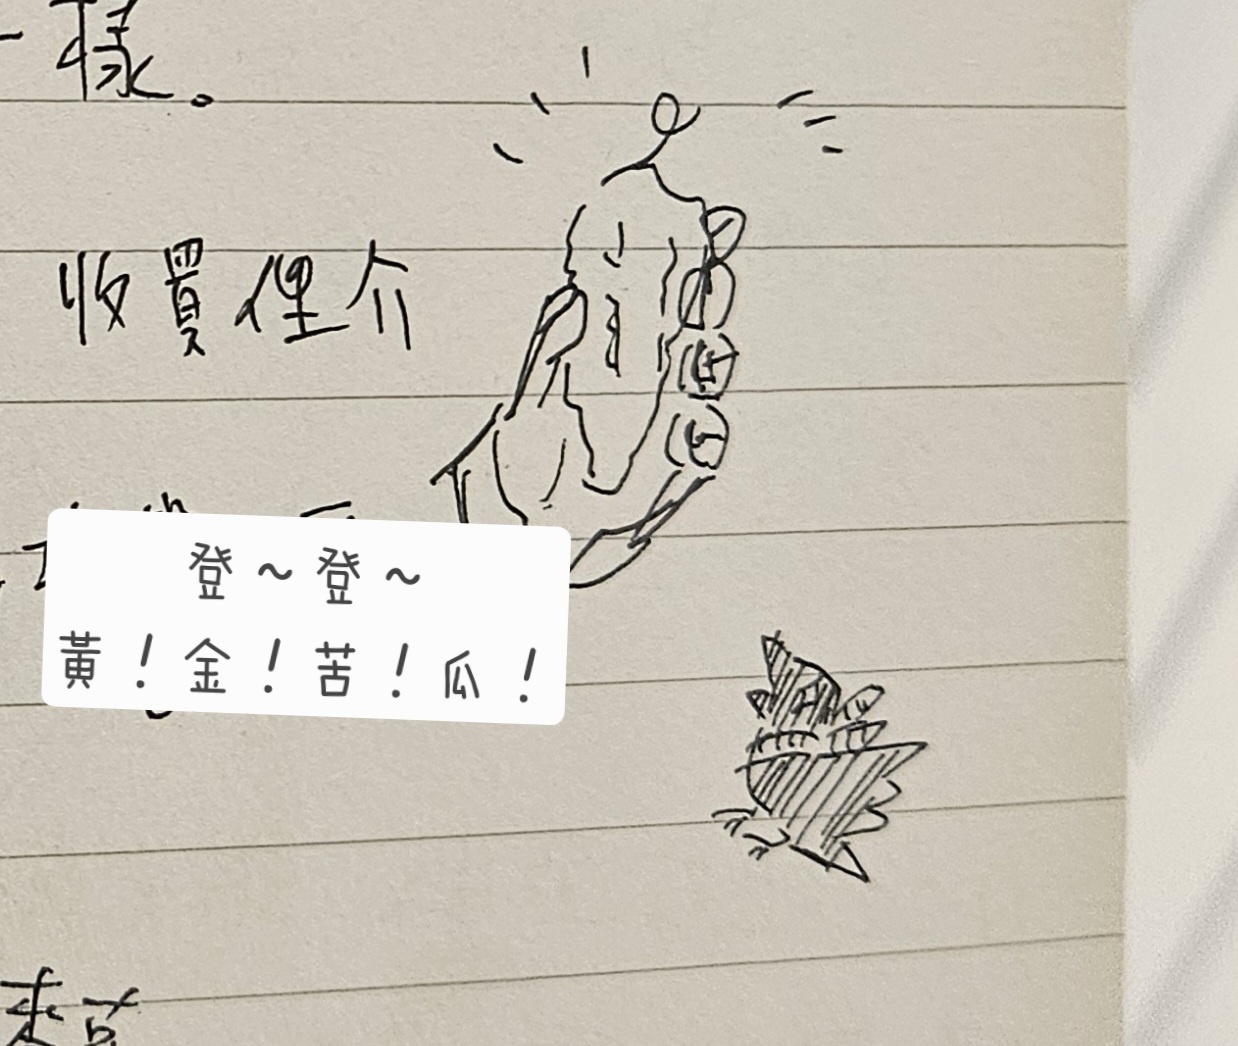 一樣。
收買俚介
登～登～
黃！金！苦！瓜！